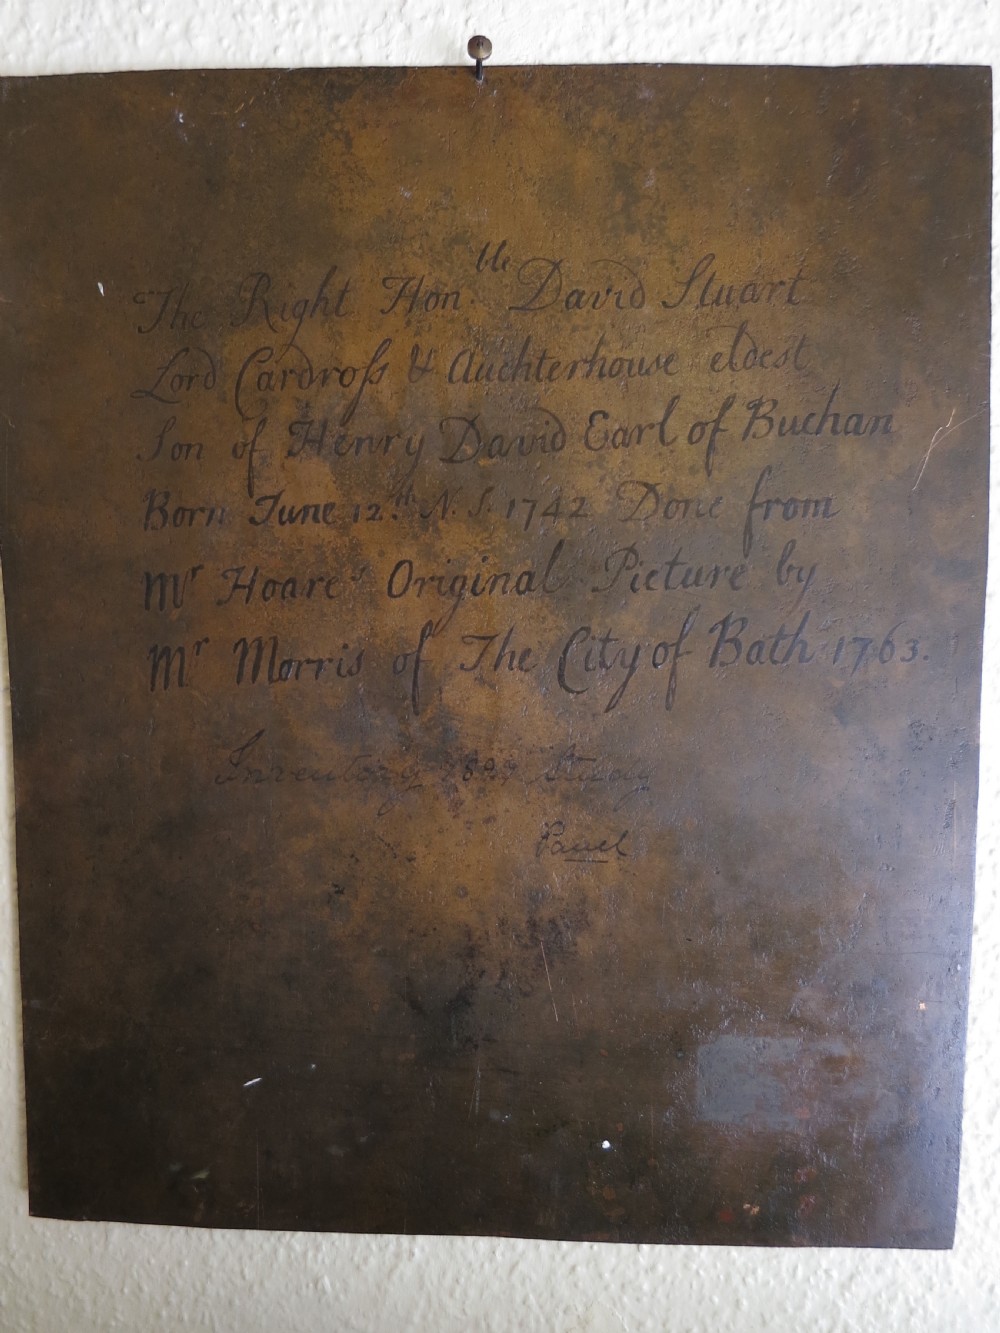 The Right Hon.ble David Stuart
Lord Cardroſs & Auchterhouse eldest
Son of Henry David Earl of Buchan
Born June 12.th N.S. 1742 Done from
Mr Hoare's Original Picture by
Mr Morris of The City of Bath 1763.
Inventory Study
Panel